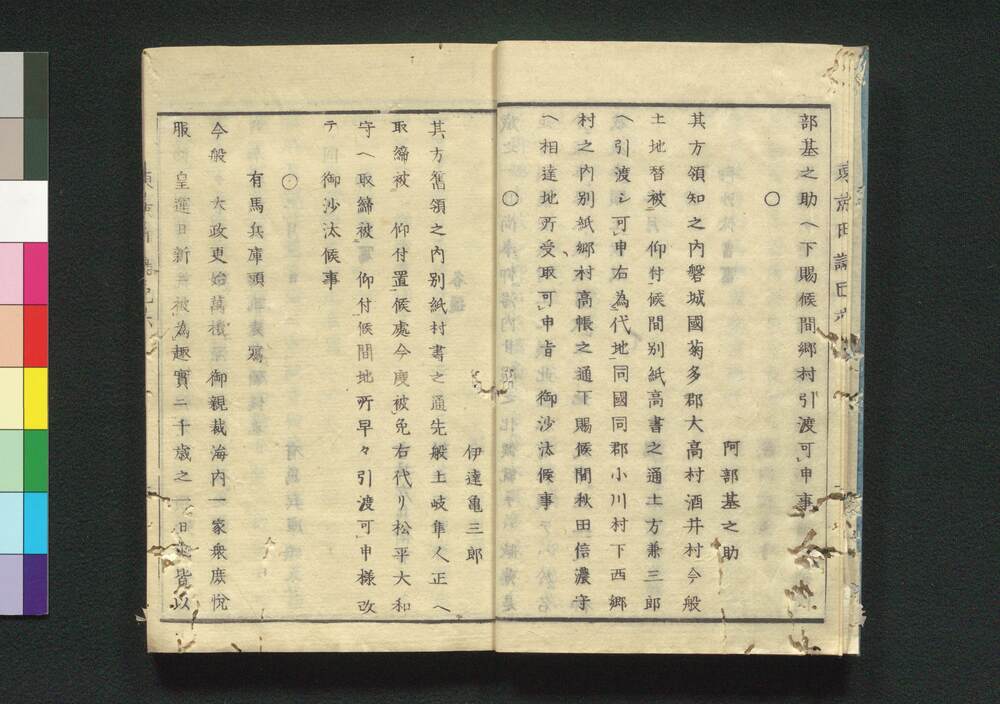 部基之助ヘ下賜候間郷村引渡可申事
○
阿部基之助
其方領知之内磐城國菊多郡大高村酒井村今般
土地替被 仰付候間別紙高書之通土方兼三郎
ヘ引渡シ可申右為代地同國同郡小川村下西郷
村之内別紙郷村高帳之通下賜候間秋田信濃守
ヘ相達地所受取可申旨御沙汰候事
○
伊達亀三郎
其方舊領之内別紙村書之通先般土岐隼人正ヘ
取締被 仰付置候處今度被免右代リ松平大和
守ヘ取締被 仰付候間地所早々引渡可申様改
テ御沙汰候事
○
有馬兵庫頭
今般 大政更始萬機 御親裁海内一家衆庶悦
服 皇運日新ニ被為趣實ニ千歳之一 皆以